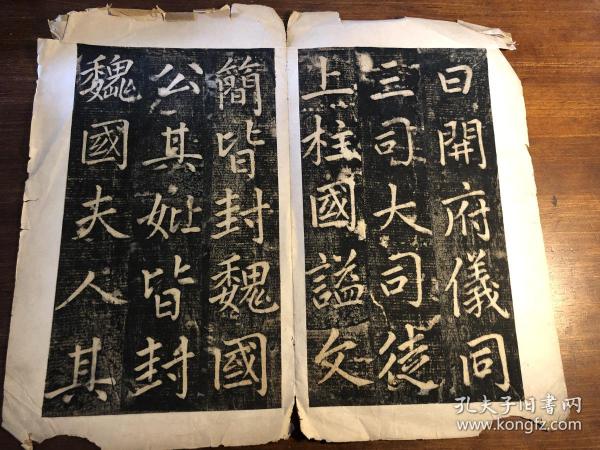 曰開府儀同
三司大司徒
上柱國謚文
簡皆封魏國
公其妣皆封
魏國夫人其
孔夫子旧書网
www.kongfz.com